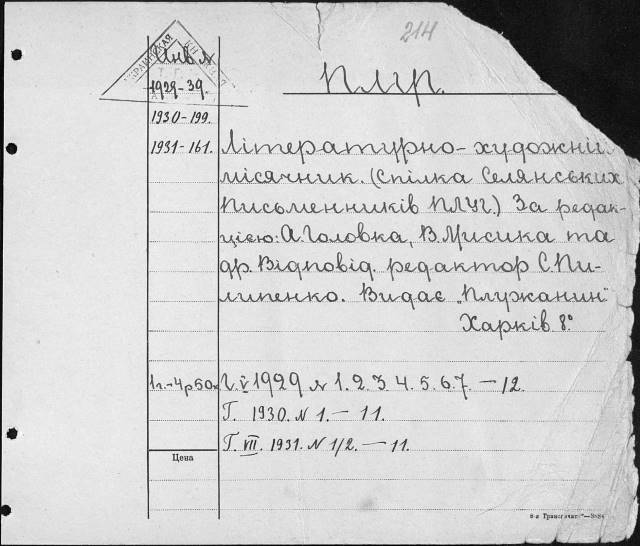 214
Инв. №
Плуг.
1929-39.
1930-199.
1931-161.
Літературно-художній
місячник. (Спілка Селянських
Письменників ПЛУГ.) За редак-
цією: А. Головка, В. Мисика та
др. Відповід. редактор С. Пи-
липенко. Видає „Плужанин"
Харків 8°
1г.-4р50к
Г. V 1929 № 1. 2. 3. 4. 5. 6. 7. — 12.
Г. 1930. № 1. — 11.
Г. VII. 1931. № 1/2. — 11.
Цена